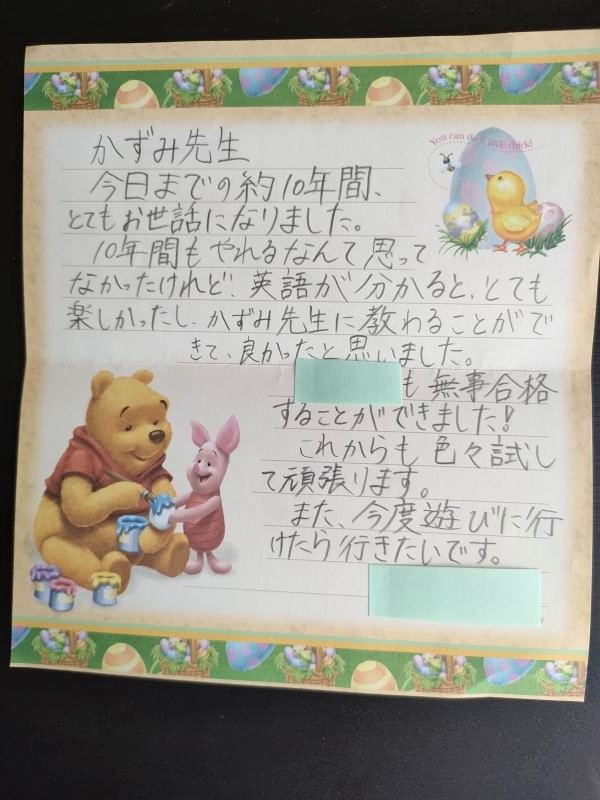 You can do it little chick!
かずみ先生
今日までの約10年間、
とてもお世話になりました。
10年間もやれるなんて思って
なかったけれど、英語が分かると、とても
楽しかったし、かずみ先生に教わることがで
きて、良かったと思いました。
も無事合格
することができました!
これからも色々試し
て頑張ります。
また、今度遊びに行
けたら行きたいです。